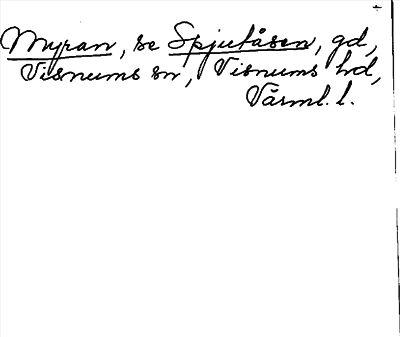 Myran, se Spjutåsen, gd,
Visnums sn, Visnums hd,
Värml. l.